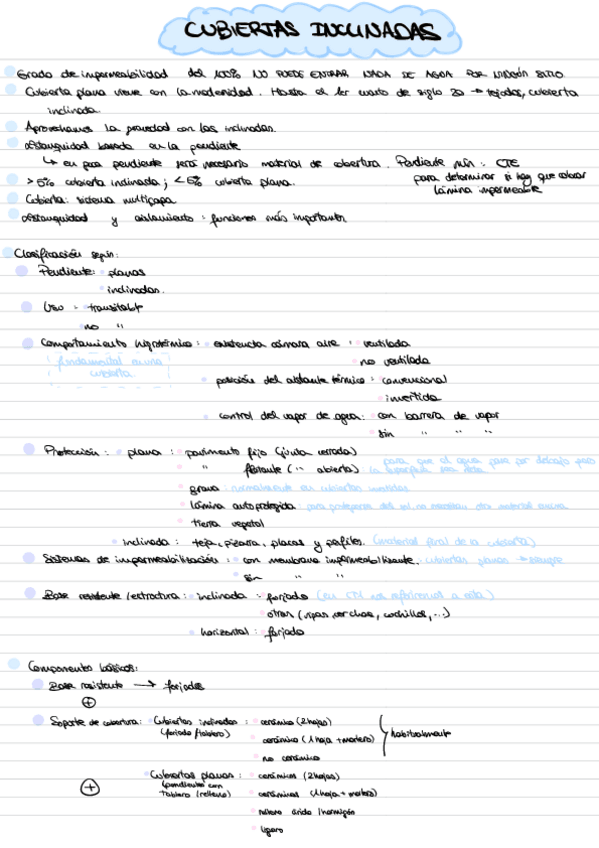 CUBIERTAS INCLINADAS
Grado de impermeabilidad del 100% NO PUEDE ENTRAR NADA DE AGUA POR NINGÚN SITIO
Cubierta plana viene con la modernidad. Hasta el 1er cuarto de siglo 20 → tejados, cubierta
inclinada
Aprovechamos la gravedad con las inclinadas.
Estanquidad basada en la pendiente
↳ en poca pendiente será necesario material de cobertura. Pendiente mín: CTE
> 5% cubierta inclinada; < 5% cubierta plana. para determinar si hay que colocar
lámina impermeable
Cubierta: sistema multicapa
Estanquidad y aislamiento: funciones más importantes
Clasificación según:
Pendiente: planas
inclinadas.
Uso: transitable
no "
Comportamiento higrotérmico: existencia cámara aire: ventilada
fundamental en una no ventilada
cubierta
posición del aislante térmico: convencional
invertida
control del vapor de agua: con barrera de vapor
sin " " "
Protección: plana: pavimento fijo (junta cerrada)
" flotante (" abierta) para que el agua pase por debajo pero
la superficie sea
grava: normalmente en cubiertas invertidas
lámina autoprotegida: para protegerse del sol no necesitan otro material encima
tierra vegetal
inclinada: teja, pizarra, placas y perfiles. (material final de la cubierta)
Sistemas de impermeabilización: con membrana impermeabilizante. cubiertas planas → siempre
sin " "
Base resistente / estructura: inclinada: forjado (en CIN nos referiremos a esta)
otras (vigas, cerchas, cuchillos, ...)
horizontal: forjado
Componentes básicos:
Base resistente → forjados
+
Soporte de cobertura: Cubiertas inclinadas: cerámico (2 hojas)
(forjado/tablero) cerámico (1 hoja + mortero) habitualmente
no cerámico
+ Cubiertas planas: cerámicos (2 hojas)
(pendientes con
tablero/relleno) cerámicos (1 hoja + mortero)
relleno árido / hormigón
ligero